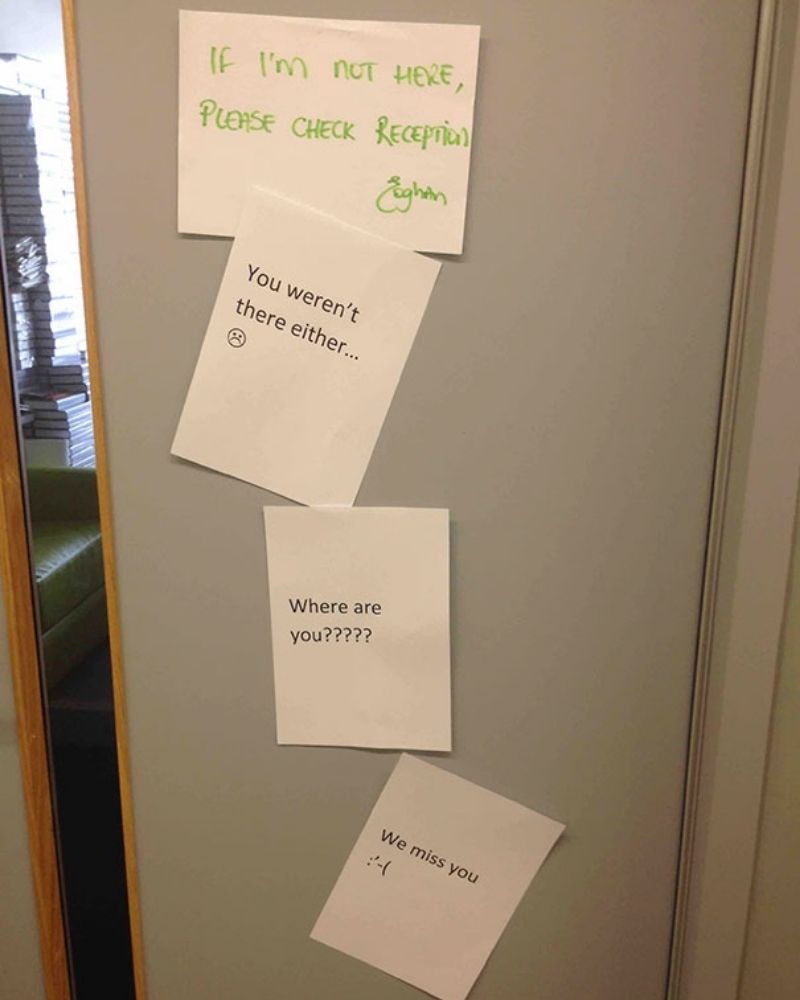 IF I'm NOT HERE,
PLEASE CHECK RECEPTION
Eoghan
You weren't
there either...
☹
Where are
you?????
We miss you
:'-(